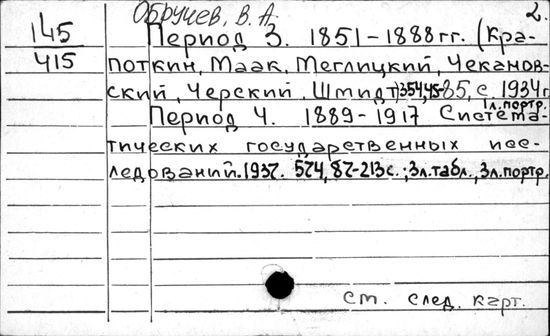 Обручев, В. А.
2.
145
415
Период 3. 1851-1888 гг. (Кра-
поткин, Маак, Меглицкий, Чеканов-
ский, Черский, Шмидт) 354, 45-85, с. 1934 г
1 л. портр.
Период 4. 1889-1917 Система-
тических государственных исс-
ледований. 1937. 574, 87-213 с.; 3 л. табл., 3 л. портр.
см. след. карт.